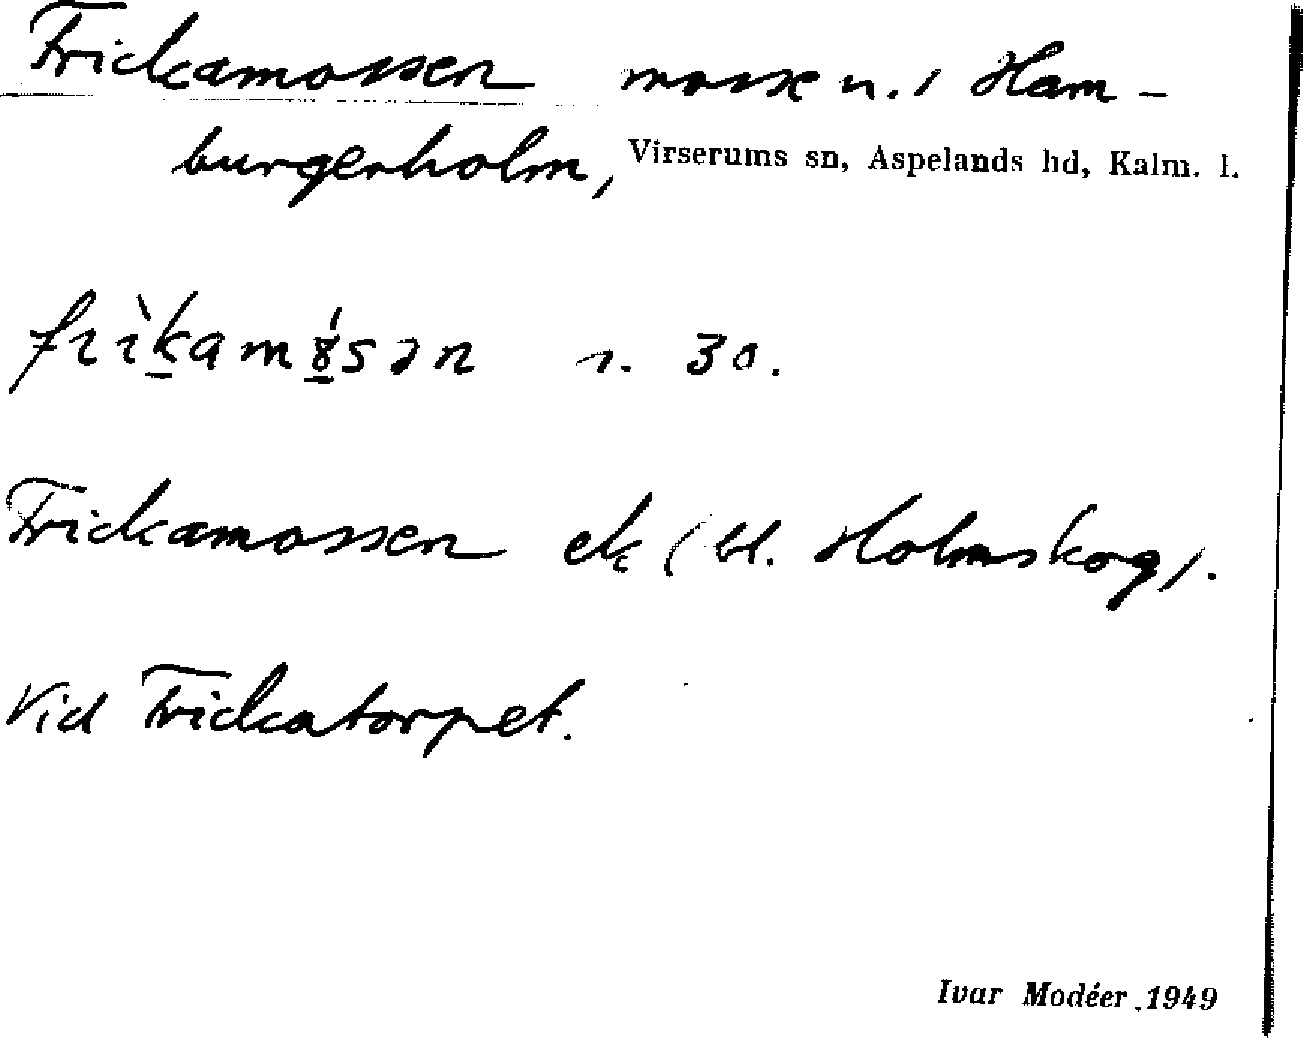 Frickamossen mosse n. i Ham-
burgerholm, Virserums sn, Aspelands hd, Kalm. l.
frìkam8́sən r. 30.
Frickamossen ek (bl. Holmskog).
Vid Frickatorpet.
Ivar Modéer 1949